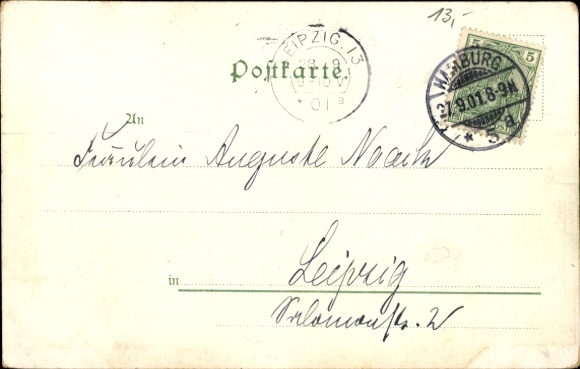 13,-
LEIPZIG.13
28 9
9-10 V
* 01 a
5 5
HAMBURG
9.01.8-9N
* 5 a
Postkarte.
An
Fräulein Auguste Noack
in Leipzig
Salomonstr. 2